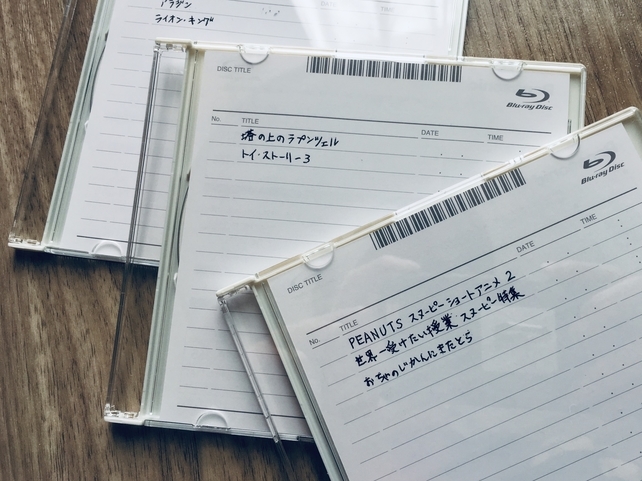 アラジン
ライオン・キング
DISC TITLE
Blu-ray Disc
No. TITLE DATE TIME
塔の上のラプンツェル
トイ・ストーリー3
DISC TITLE
Blu-ray Disc
No. TITLE DATE TIME
PEANUTS スヌーピー ショートアニメ 2
世界一受けたい授業 スヌーピー特集
おちゃのじかんにきたとら